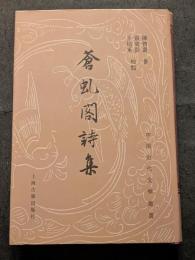 陳曾壽 著
張寅彭
王培軍 校點
蒼虬閣詩集
中國近代文學叢書
上海古籍出版社